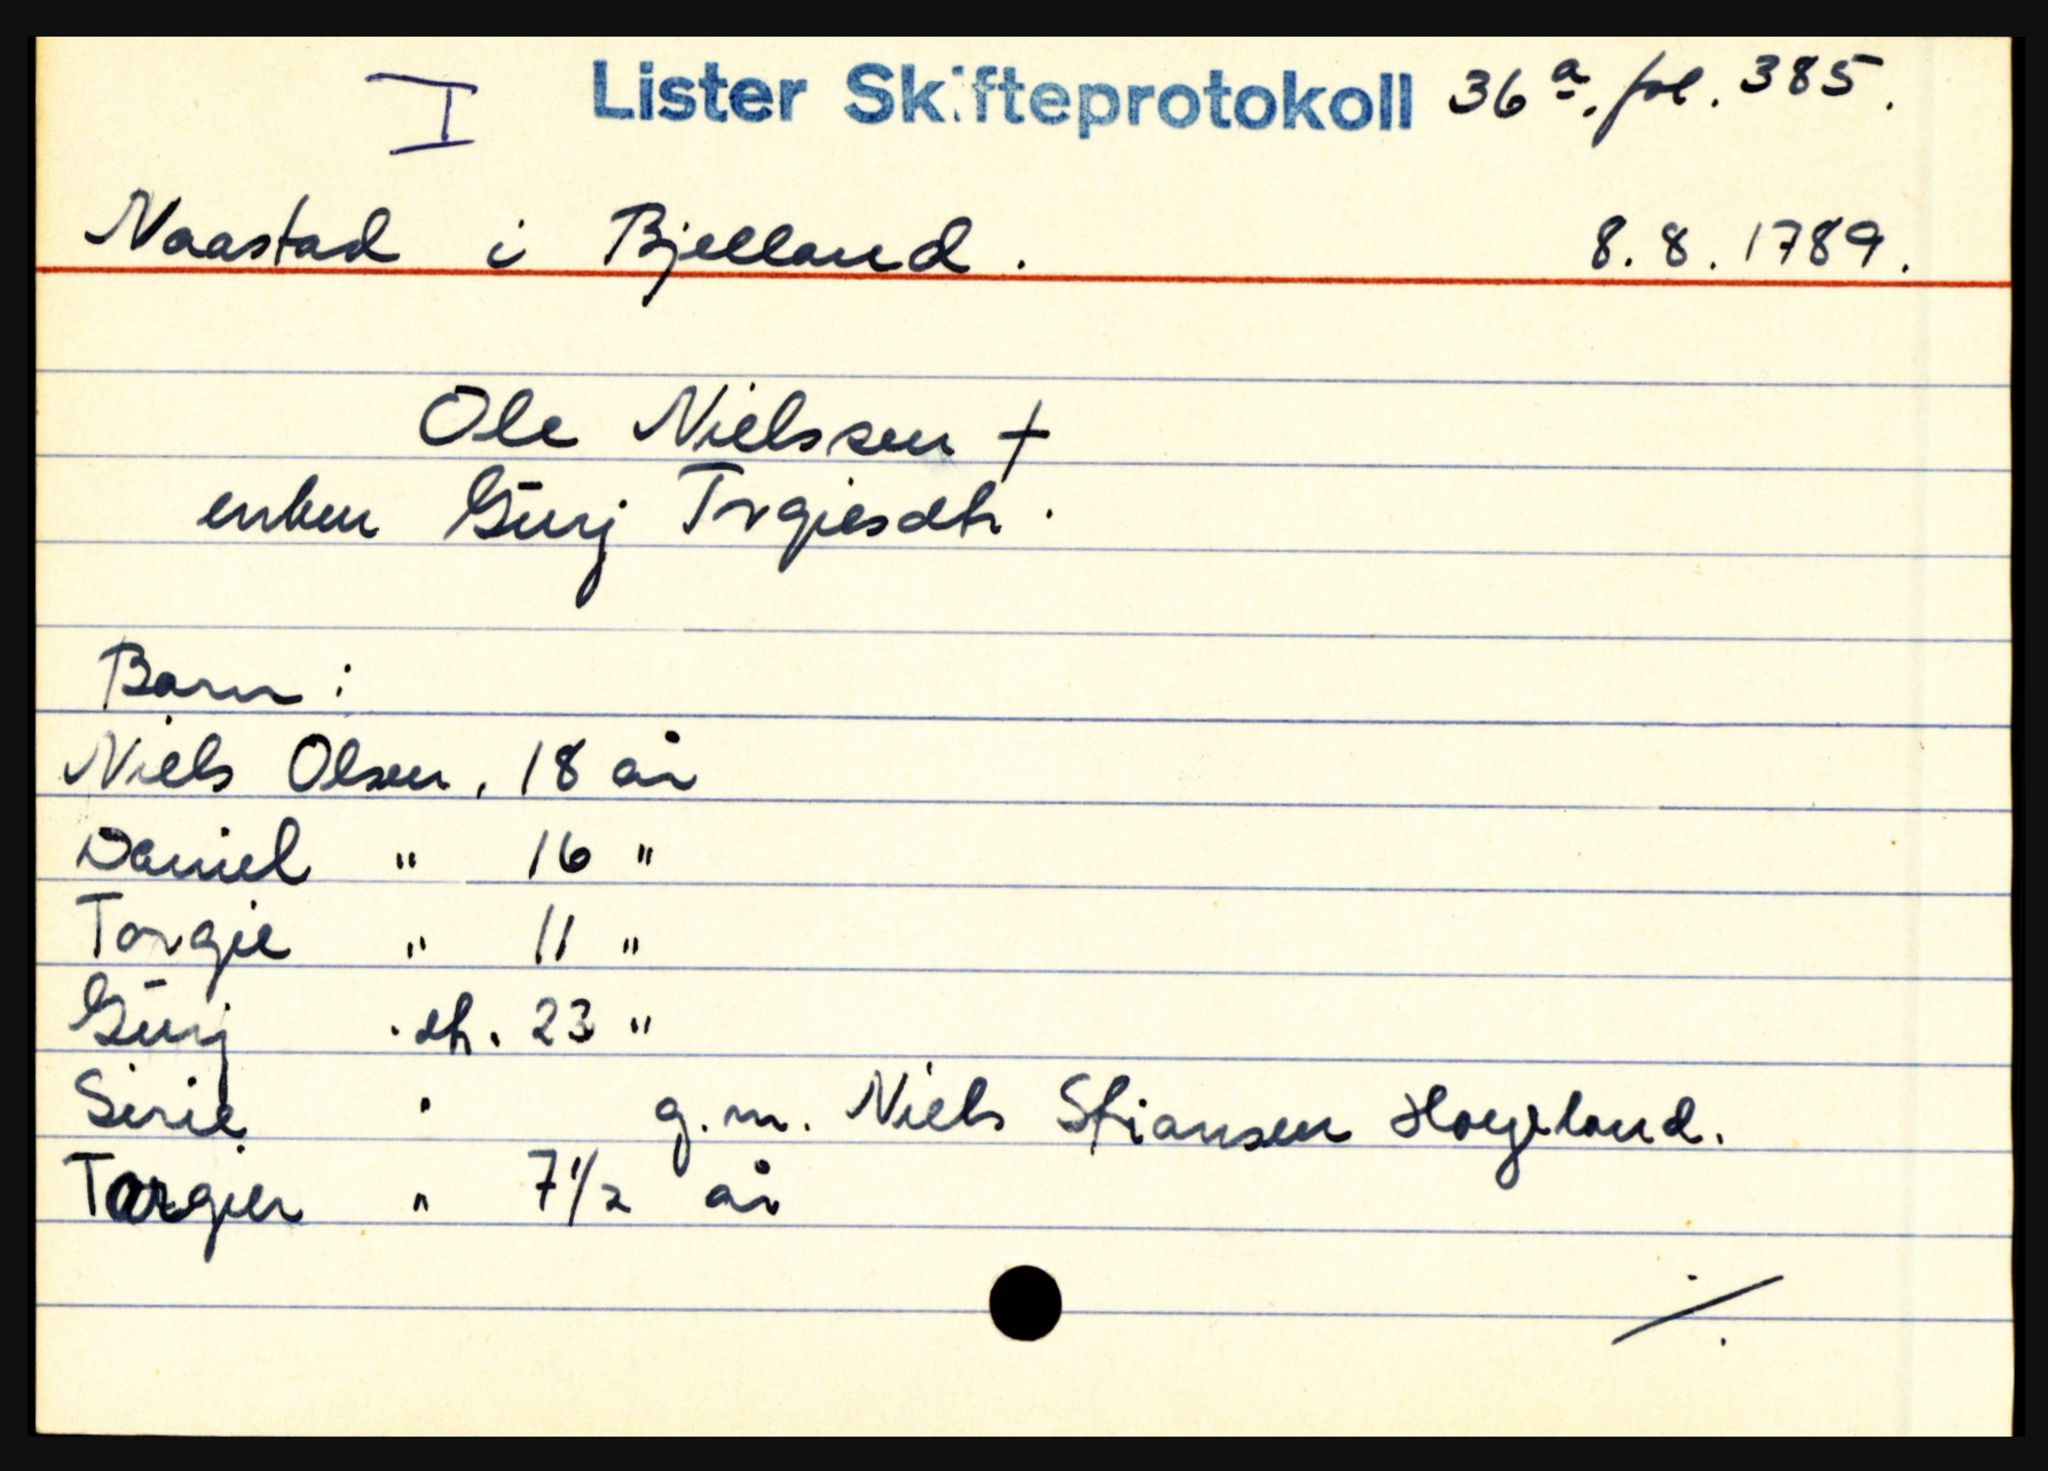 I Lister Skifteprotokoll 36a. fol. 385.
Naastad i Bjelland. 8.8.1789.
Ole Nielssen +
enken Gurj Trgiesdtr.
Barn:
Niels Olsen, 18 år
Daniel " 16 "
Torgie " 11 "
Gurj " dtr. 23 "
Sirie " g.m. Niels Stiansen Høyeland.
Torgier " 7 1/2 år
./.